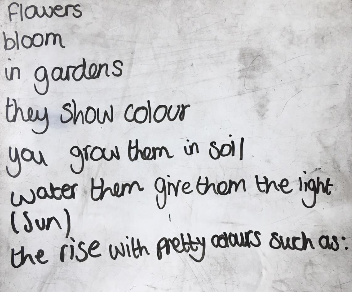 flowers
bloom
in gardens
they show colour
you grow them in soil
water them give them the light
(Sun)
the rise with pretty colours such as: